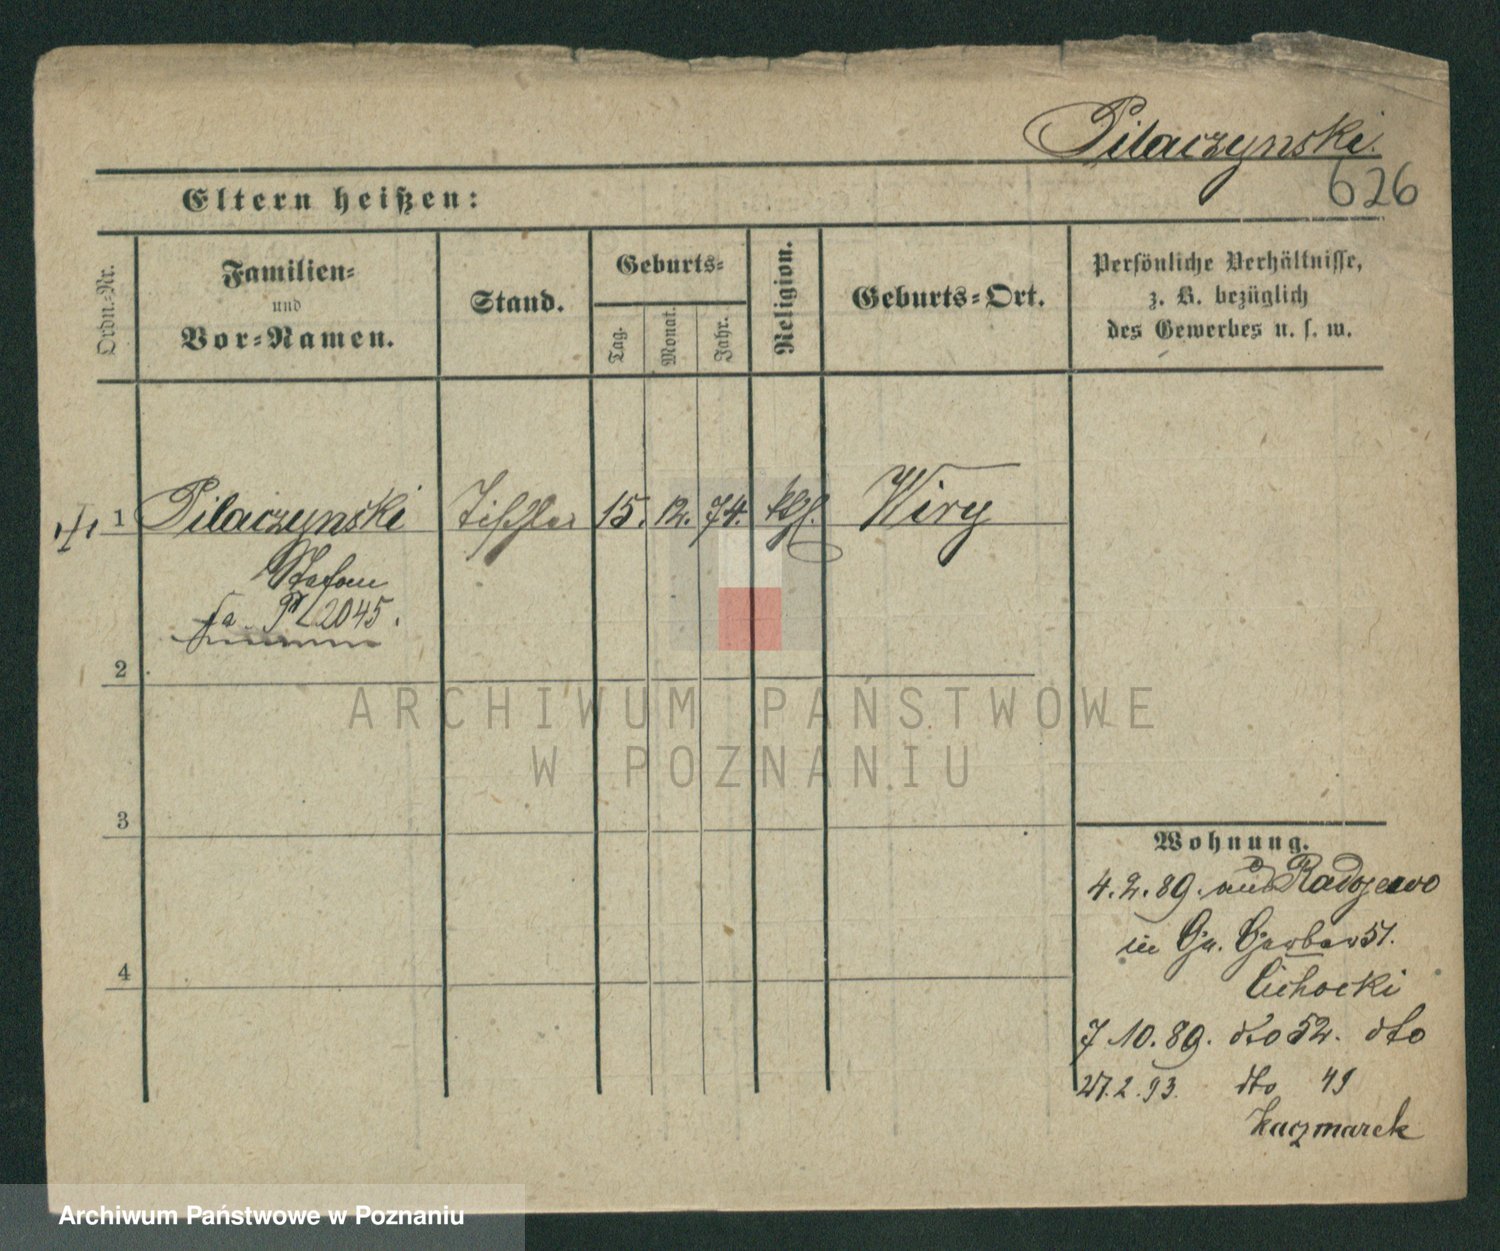 Pilaczynski.
626
Eltern heißen:
Ordn.-Nr.
Familien-
und
Vor-Namen.
Stand.
Geburts-
Tag.
Monat.
Jahr.
Religion.
Geburts-Ort.
Persönliche Verhältnisse,
z. B. bezüglich
des Gewerbes u. s. w.
1 Pilaczynski Tischler 15. 12. 74. kth. Wiry
Stefan
2045.
2
3
4
ARCHIWUM PAŃSTWOWE
W POZNANIU
Wohnung.
4. 2. 89. aus Radojewo
in Gr. Gerber 51.
Cichocki
7 10. 89. dto 52. dto
27. 2. 93. dto 49
Kaczmarek
Archiwum Państwowe w Poznaniu